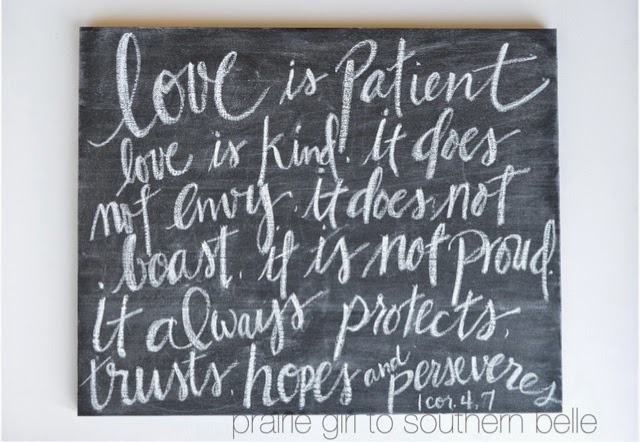 love is Patient
love is kind. it does
not envy. it does not
boast. it is not proud.
it always protects,
trusts, hopes and perseveres
1 cor. 4,7
prairie girl to southern belle